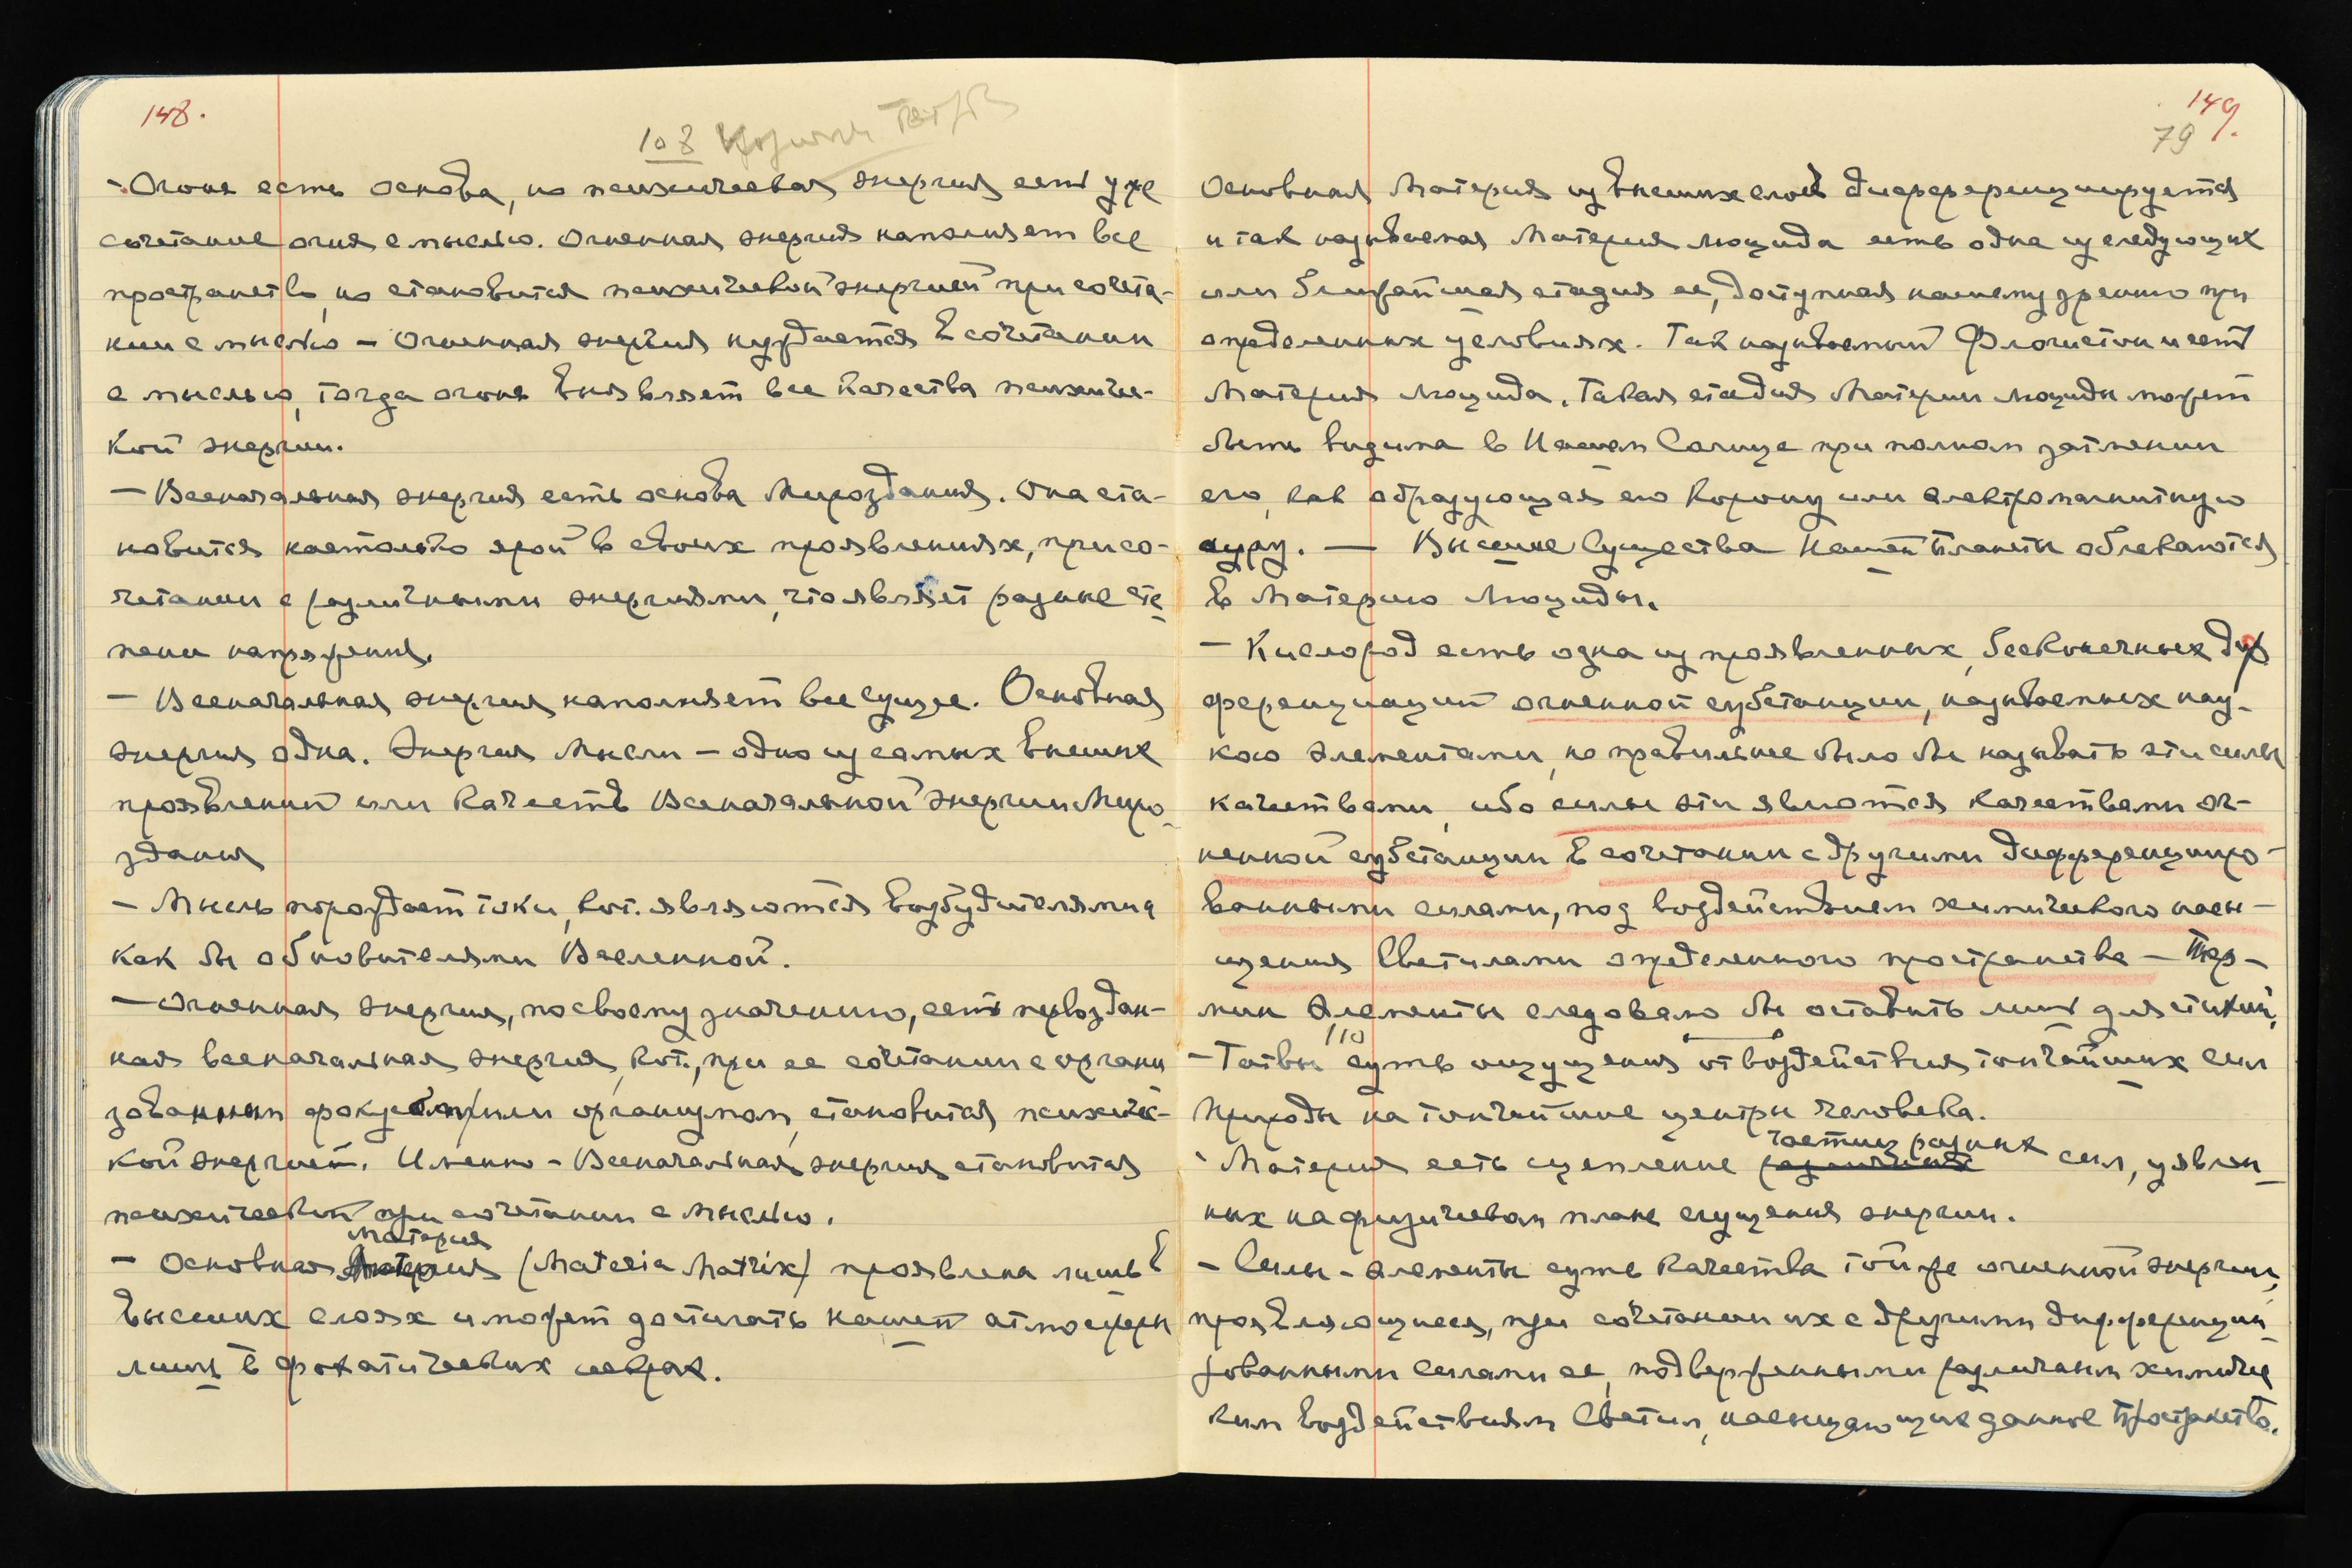 148.
108
- Огонь есть основа, но психическая энергия есть уже
сочетание огня с мыслью. Огненная энергия наполняет все
пространство, но становится психической энергией при сочета-
нии с мыслью – Огненная энергия нуждается в сочетании
с мыслью, тогда огонь выявляет все качества психичес-
кой энергии.
- Всеначальная энергия есть основа Мироздания. Она ста-
новится настолько ярой в своих проявлениях, при со-
четании с различными энергиями, что являет разные сте-
пени напряжения.
- Всеначальная энергия наполняет все сущее. Основная
энергия одна. Энергия Мысли – одно из самых высших
проявлений или качеств Всеначальной энергии Миро-
здания
- Мысль порождает токи, кот. являются возбудителями и
как бы обновителями Вселенной.
- Огненная энергия, по своему значению, есть первоздан-
ная всеначальная энергия, кот., при ее сочетании с органи
зованным фокусом/или организмом, становится психичес-
кой энергией. Именно – Всеначальная энергия становится
психической при сочетании с мыслью.
- Основная Материя (Materia Matrix) проявлена лишь в
высших слоях и может достигать нашей атмосферы
лишь в фохатических искрах.
149.
79
Основная Материя из высших слоев дифференцируется
и так называемая Материя Люцида есть одна из следующих
или ближайшая стадия ее, доступная нашему зрению при
определенных условиях. Так называемый Флогистон и есть
Материя Люцида. Такая стадия Материи Люциды может
быть видима в Нашем Солнце при полном затмении
его, как образующая его Корону или электромагнитную
ауру. — Высшие Существа Нашей Планеты облекаются
в Материю Люциды.
- Кислород есть одна из проявленных, бесконечных диф
ференциаций огненной субстанции, называемых нау-
кою элементами, но правильнее было бы называть эти силы
качествами, ибо силы эти являются качествами ог-
ненной субстанции в сочетании с другими дифференциро-
ванными силами, под воздействием химического насы-
щения Светилами определенного пространства – Тер-
мин Элементы следовало бы оставить лишь для стихий.
110
- Татвы суть ощущения от воздействия тончайших сил
Природы на тончайшие центры человека.
частиц разных
- Материя есть сцепление сил, уявлен-
ных на физическом плане сгущения энергии.
- Силы – элементы суть качества той же огненной энергии,
проявляющиеся, при сочетании их с другими дифференци-
рованными силами ее, подверженными различным химичес
ким воздействиям Светил, насыщающих данное Пространство.